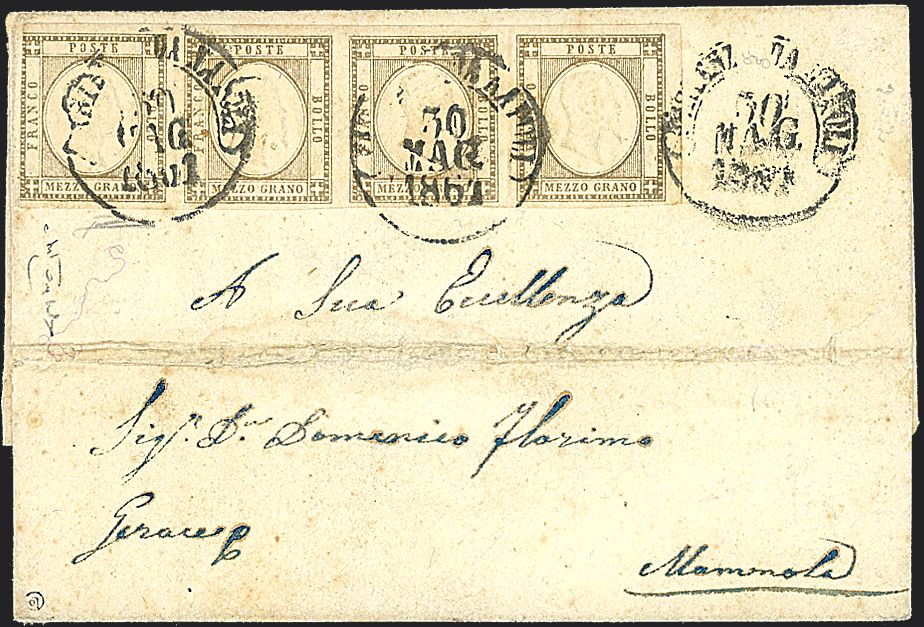 POSTE POSTE POSTE POSTE
FRANCO BOLLO FRANCO BOLLO FRANCO BOLLO FRANCO BOLLO
MEZZO GRANO MEZZO GRANO MEZZO GRANO MEZZO GRANO
30 MAG 1861
30 MAG 1861
30 MAG 1861
A Sua Eccellenza
Sigr. Dn Domenico Florimo
Gerace p
Mammola